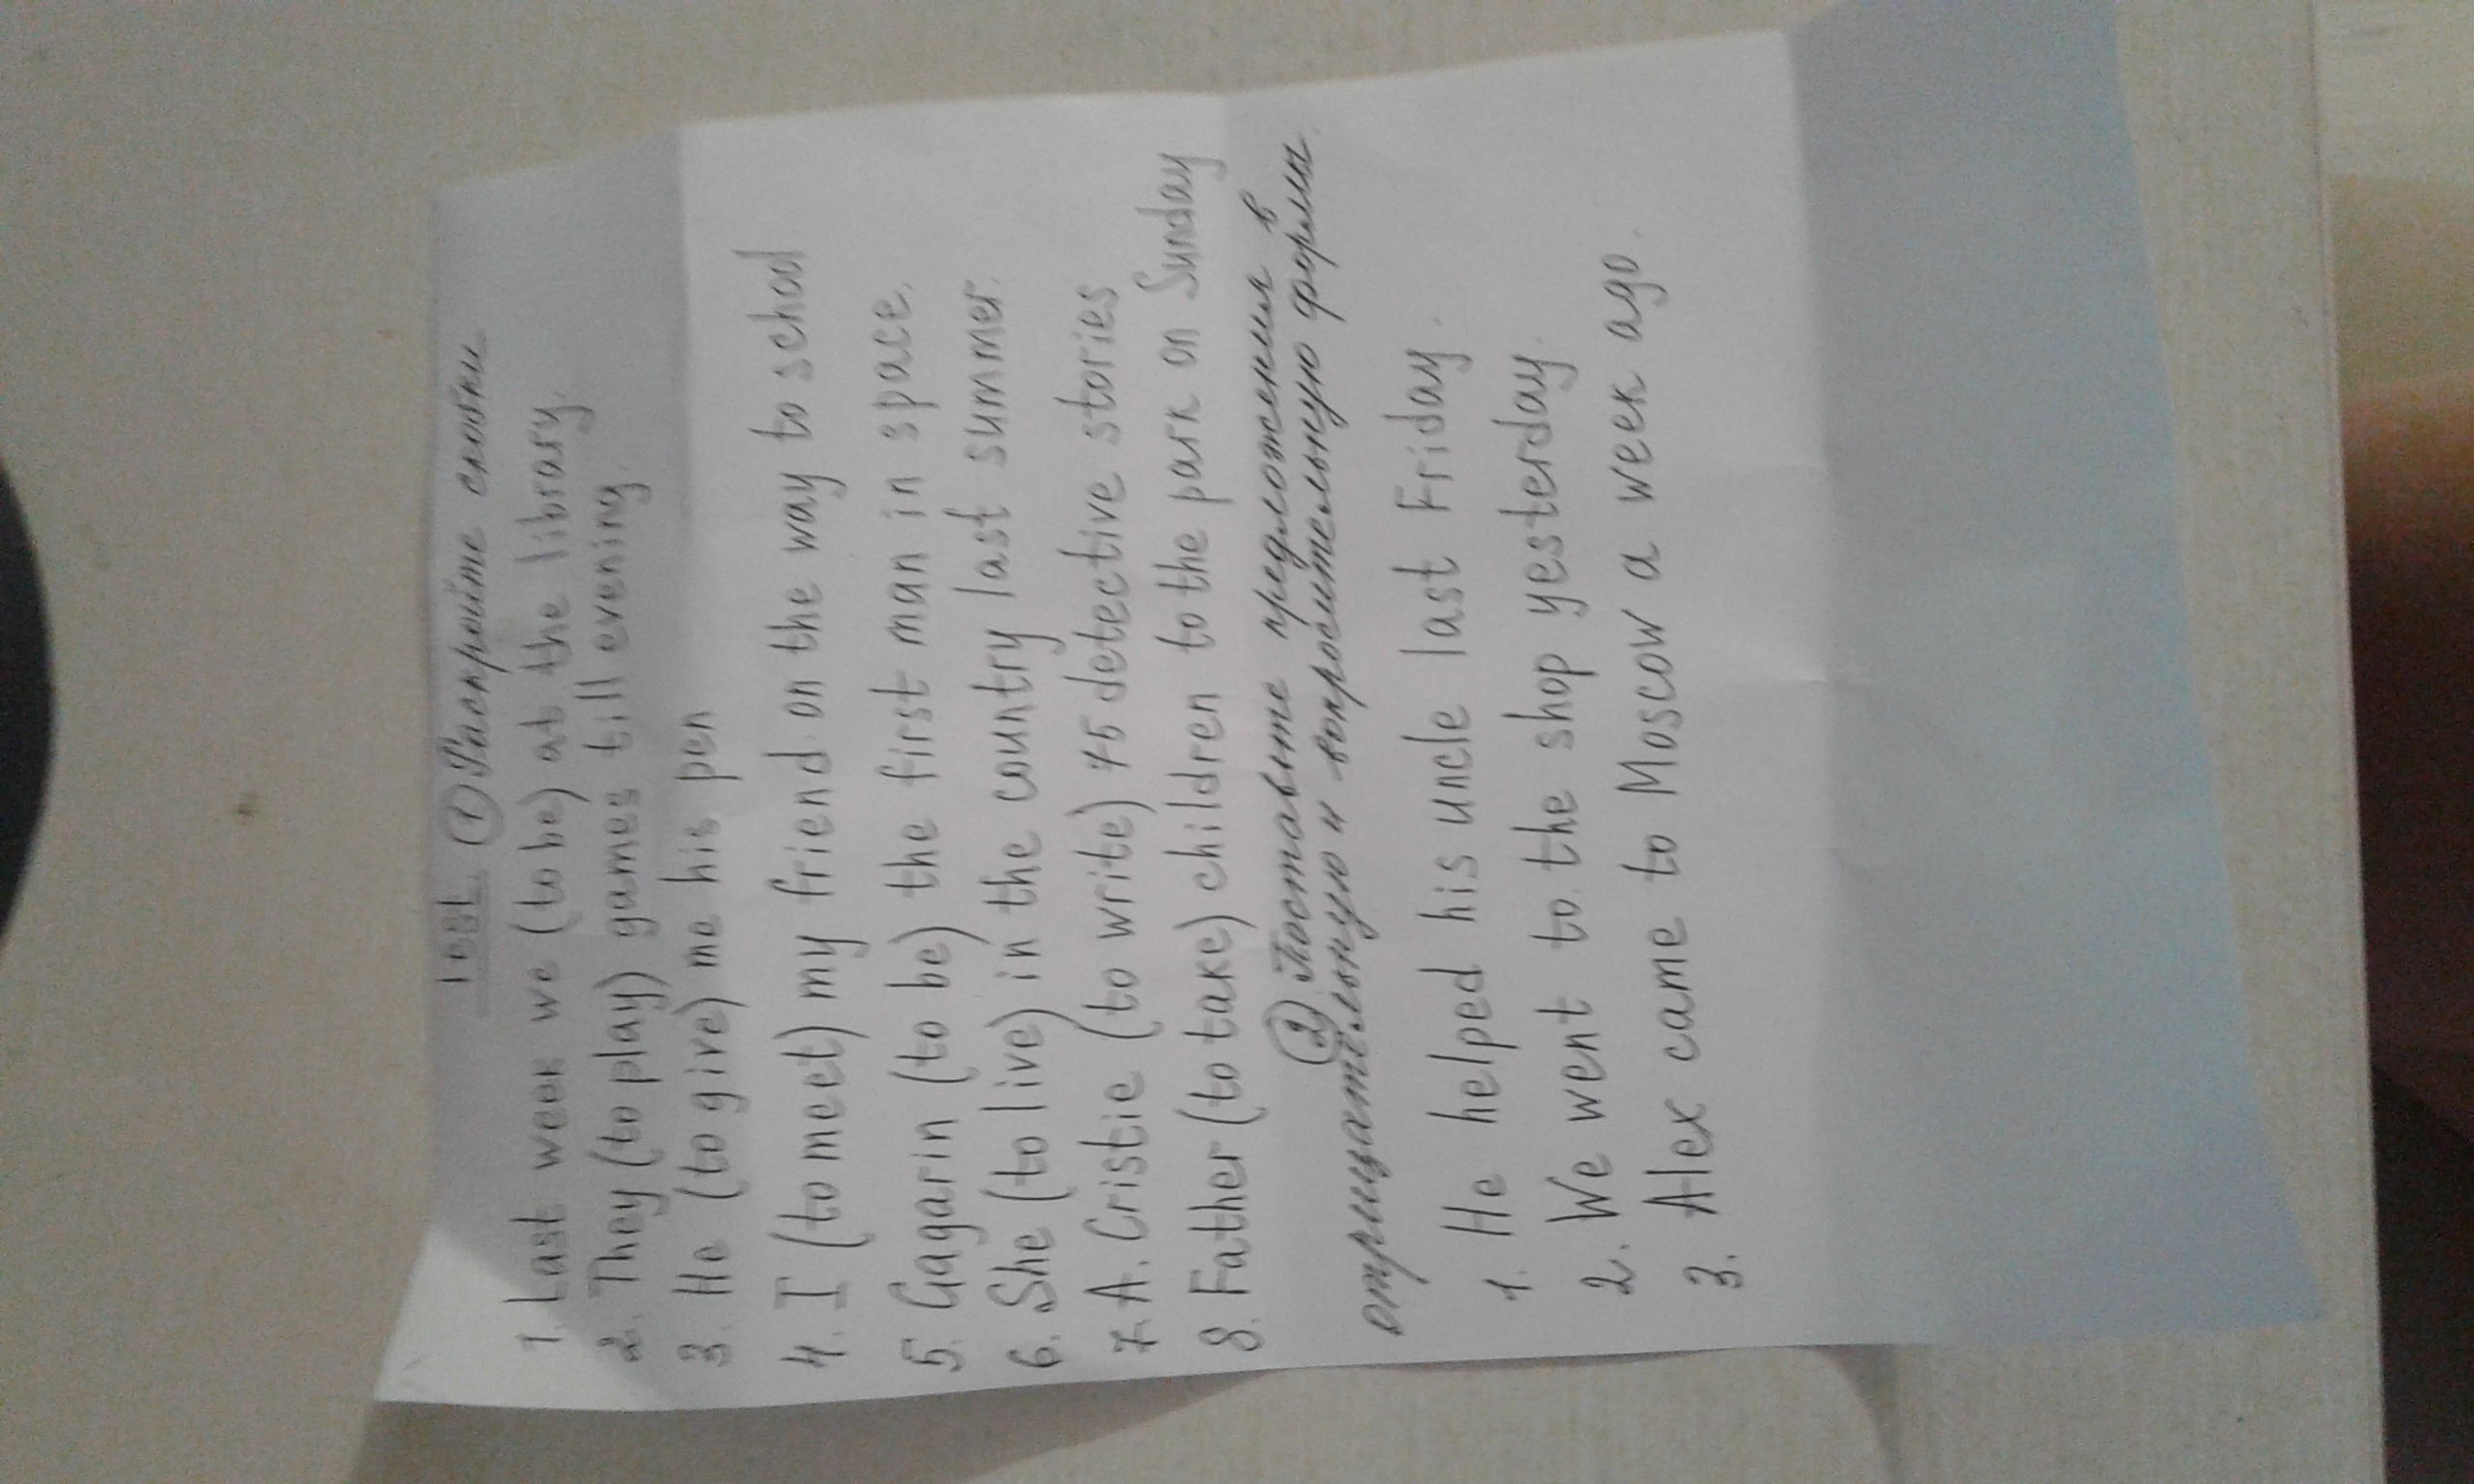 Test. ① Раскройте скобки
1. Last week we (to be) at the library.
2. They (to play) games till evening.
3. He (to give) me his pen
4. I (to meet) my friend on the way to school
5. Gagarin (to be) the first man in space.
6. She (to live) in the country last summer.
7. A. Cristie (to write) 75 detective stories
8. Father (to take) children to the park on Sunday
② Поставьте предложения в
отрицательную и вопросительную формы.
1. He helped his uncle last Friday.
2. We went to the shop yesterday.
3. Alex came to Moscow a week ago.